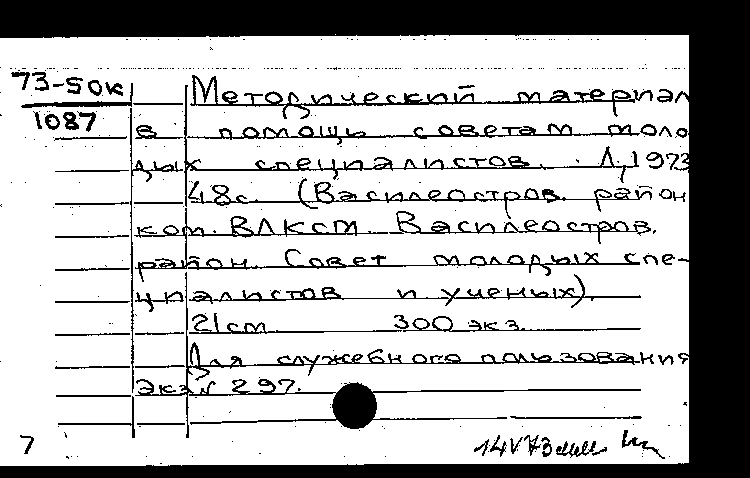 73-50к
1087
Методический материал
в помощь советам моло
дых специалистов. Л, 1973
48с. (Василеостров. район
ком. ВЛКСМ. Василеостров.
район. Совет молодых спе-
циалистов и ученых).
21см 300 экз.
Для служебного пользования
Экз N 297.
7
14 V 73